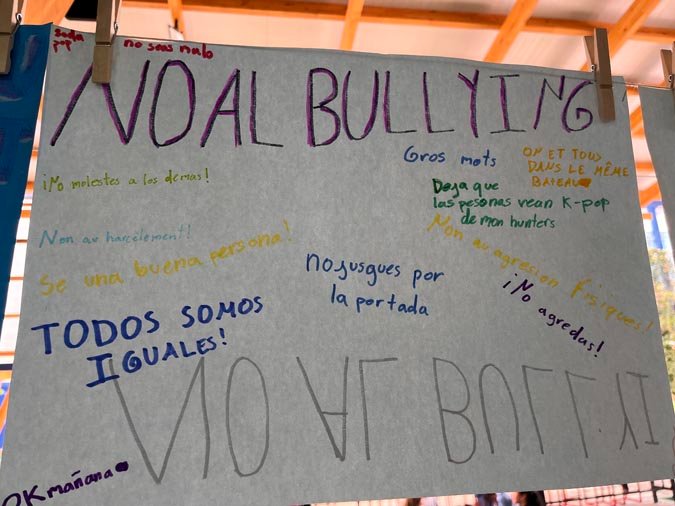 Soda
pop
no seas malo
NO AL BULLYING
Gros mots
ON ET TOUS
DANS LE MÊME
BATEAU
¡No molestes a los demas!
Deja que
las pesonas vean K-pop
demon hunters
Non au harcèlement!
Non au agresion fisiques!
Se una buena persona!
no jusgues por
la portada
¡No agredas!
TODOS SOMOS
IGUALES!
NO AL BULLYI
OK mañana